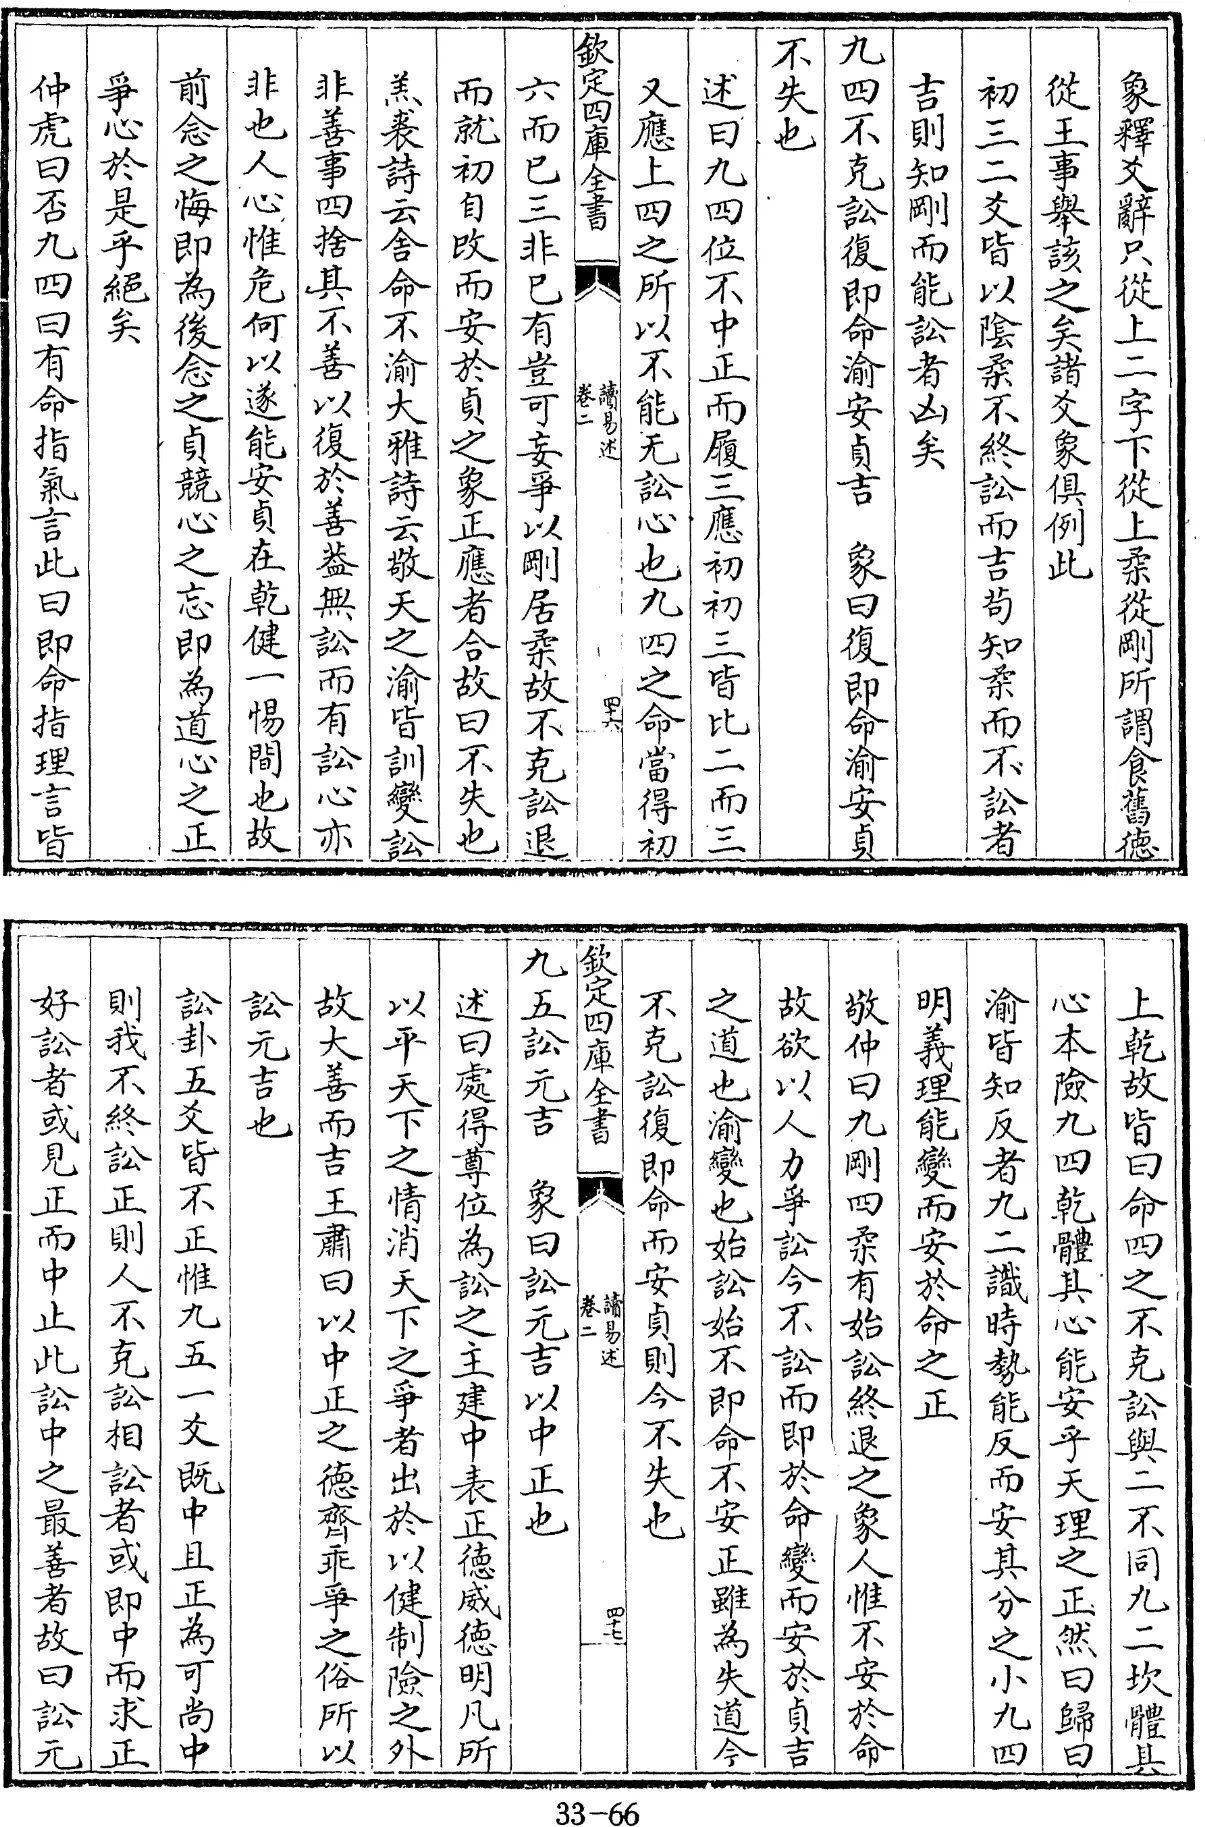 象釋爻辭只從上二字下從上柔從剛所謂食舊德
從王事舉該之矣諸爻象俱例此
初三二爻皆以陰柔不終訟而吉茍知柔而不訟者
吉則知剛而能訟者凶矣
九四不克訟復即命渝安貞吉　象曰復即命渝安貞
不失也
述曰九四位不中正而履三應初初三皆比二而三
又應上四之所以不能无訟心也九四之命當得初
欽定四庫全書
讀易述
卷二
四十六
六而已三非已有豈可妄爭以剛居柔故不克訟退
而就初自改而安於貞之象正應者合故曰不失也
羔裘詩云舍命不渝大雅詩云敬天之渝皆訓變訟
非善事四捨其不善以復於善葢無訟而有訟心亦
非也人心惟危何以遂能安貞在乾健一惕間也故
前念之悔即為後念之貞競心之忘即為道心之正
爭心於是乎絕矣
仲虎曰否九四曰有命指氣言此曰即命指理言皆
上乾故皆曰命四之不克訟與二不同九二坎體其
心本險九四乾體其心能安乎天理之正然曰歸曰
渝皆知反者九二識時勢能反而安其分之小九四
明義理能變而安於命之正
敬仲曰九剛四柔有始訟終退之象人惟不安於命
故欲以人力爭訟今不訟而即於命變而安於貞吉
之道也渝變也始訟始不即命不安正雖為失道今
不克訟復即命而安貞則今不失也
欽定四庫全書
讀易述
卷二
四十七
九五訟元吉　象曰訟元吉以中正也
述曰處得尊位為訟之主建中表正德威德明凡所
以平天下之情消天下之爭者出於以健制險之外
故大善而吉王肅曰以中正之德齊乖爭之俗所以
訟元吉也
訟卦五爻皆不正惟九五一爻既中且正為可尚中
則我不終訟正則人不克訟相訟者或即中而求正
好訟者或見正而中止此訟中之最善者故曰訟元
33-66